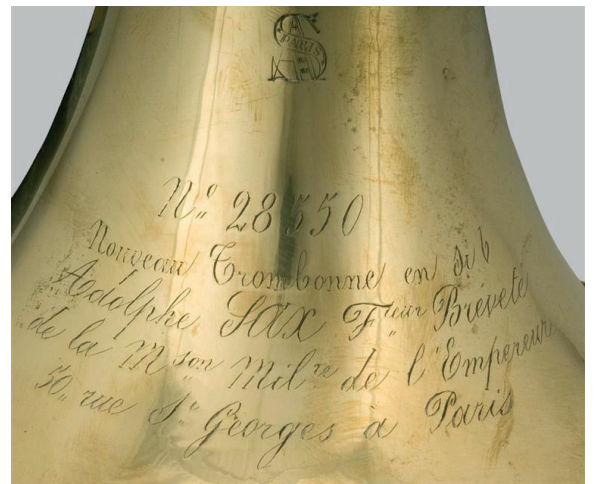 PARIS
AS
Nº 28550
Nouveau Trombonne en si b
Adolphe SAX Fteur Breveté
de la Mson Milre de l'Empereur
50, rue St Georges à Paris